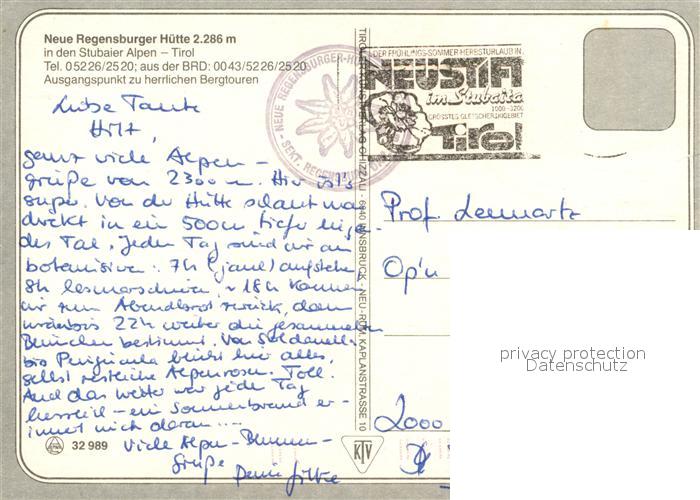 Neue Regensburger Hütte 2.286 m
in den Stubaier Alpen – Tirol
Tel. 05226/2520; aus der BRD: 0043/5226/2520
Ausgangspunkt zu herrlichen Bergtouren
Liebe Tante
ganz viele Alpen–
grüße von 2300 m. Hier ist's
super. Von der Hütte schaut man
direkt in ein 500m tiefer liegen-
des Tal. Jeden Tag sind wir am
botanisieren: 7h (jaul) aufstehen,
8h losmarschieren ~ 18h kommen
wir zum Abendbrot zurück, dann
werden bis 22h weiter die gesammelten
Blümchen bestimmt. Von Soldanella
bis blüht hier alles,
selbst restliche Alpenrosen. Toll.
Und das Wetter war jeden Tag
– ein Sonnenbrand er-
innert mich daran ...
Viele Alpen-Blumen-
Grüße
NEUE REGENSBURGER-HÜ
SEKT. REGENSBURG
32 989
TIROL
6040 INNSBRUCK - NEU-RUM, KAPLANSTRASSE 10
KTV
DER FRÜHLINGS-SOMMER-HERBSTURLAUB IN
NEUSTIFT
im Stubaital
GRÖSSTES GLETSCHERSKIGEBIET
Tirol
Prof. Lennartz
2000
privacy protection
Datenschutz